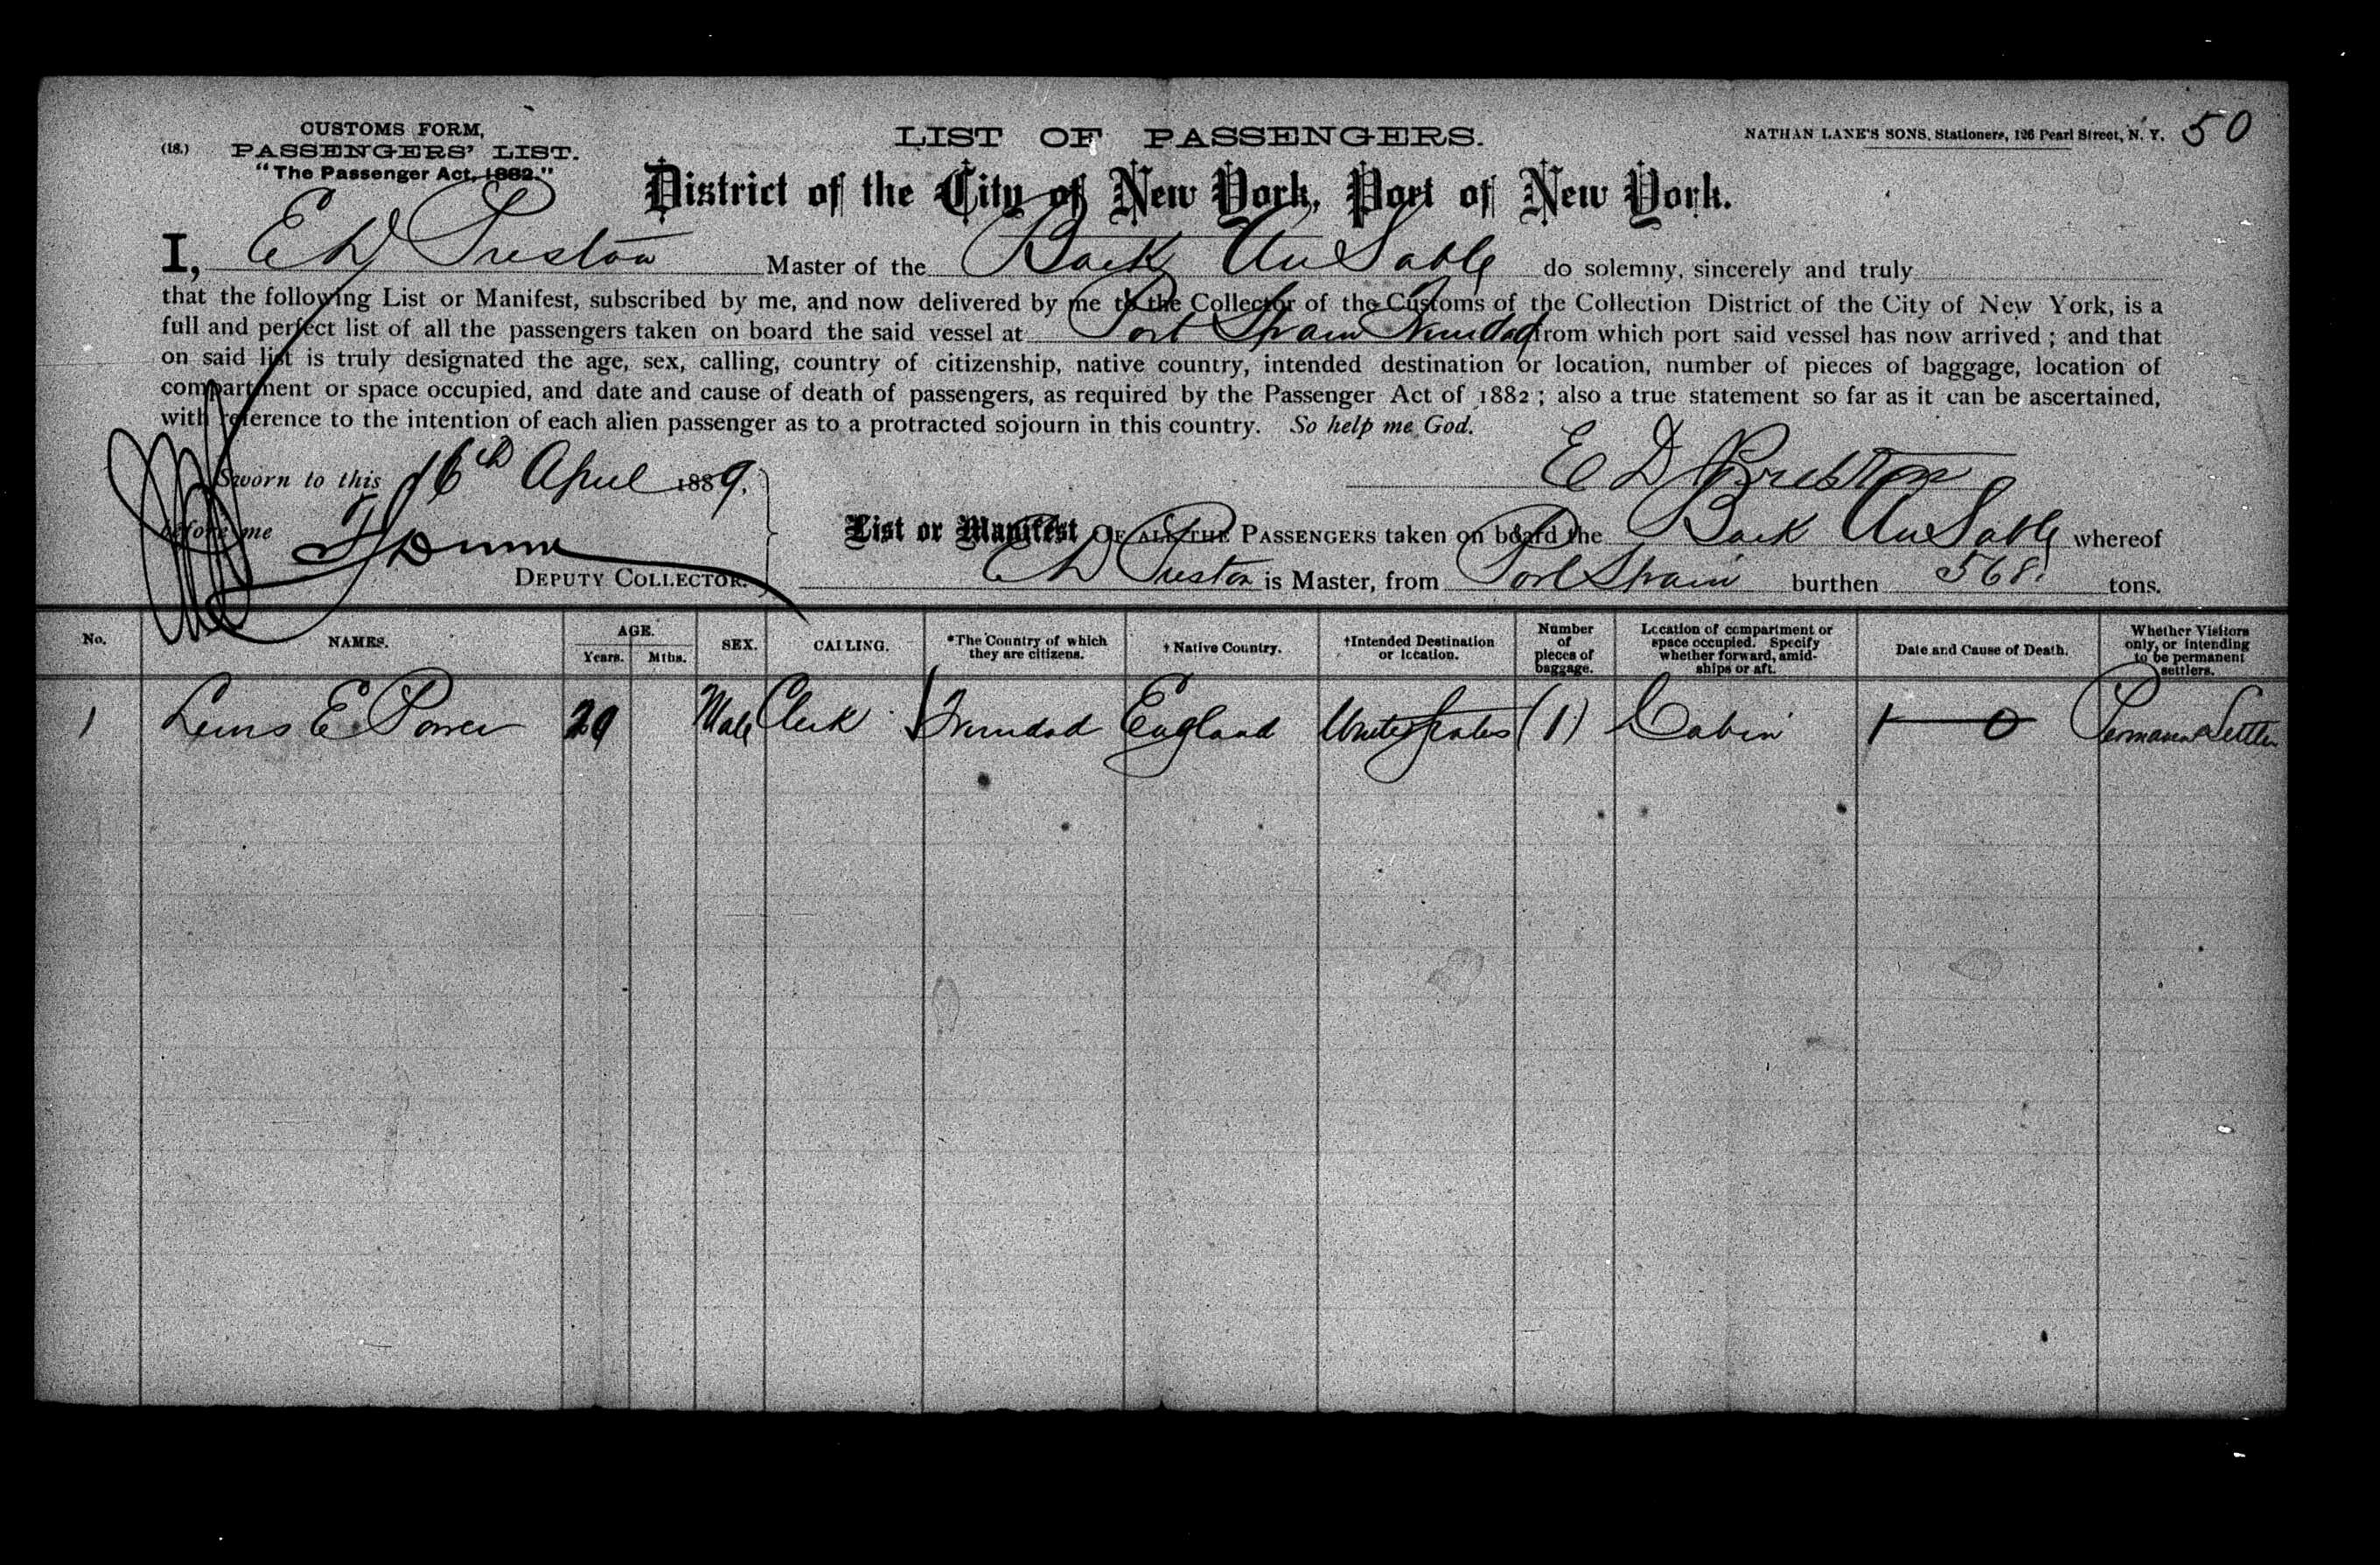 (18.)
CUSTOMS FORM,
PASSENGERS' LIST.
"The Passenger Act, 1882."
LIST OF PASSENGERS.
NATHAN LANE'S SONS, Stationers, 126 Pearl Street, N. Y.
50
District of the City of New York, Port of New York.
I, E D Preston Master of the Bark AuSable do solemny, sincerely and truly
that the following List or Manifest, subscribed by me, and now delivered by me to the Collector of the Customs of the Collection District of the City of New York, is a
full and perfect list of all the passengers taken on board the said vessel at Port Spain Trinidad from which port said vessel has now arrived ; and that
on said list is truly designated the age, sex, calling, country of citizenship, native country, intended destination or location, number of pieces of baggage, location of
compartment or space occupied, and date and cause of death of passengers, as required by the Passenger Act of 1882 ; also a true statement so far as it can be ascertained,
with reference to the intention of each alien passenger as to a protracted sojourn in this country. So help me God.
Sworn to this 16th April 1889.
E D Preston
before me
DEPUTY COLLECTOR.
List or Manifest OF ALL THE PASSENGERS taken on board the Bark AuSable whereof
E D Preston is Master, from Port Spain burthen 568. tons.
No. NAMES. AGE. Years. Mths. SEX. CALLING. *The Country of which they are citizens. † Native Country. †Intended Destination or location. Number of pieces of baggage. Location of compartment or space occupied. Specify whether forward, amidships or aft. Date and Cause of Death. Whether Visitors only, or intending to be permanent settlers.
1 Lewis E Power 29 Male Clerk Trinidad England United States (1) Cabin 0 Permanent Settler